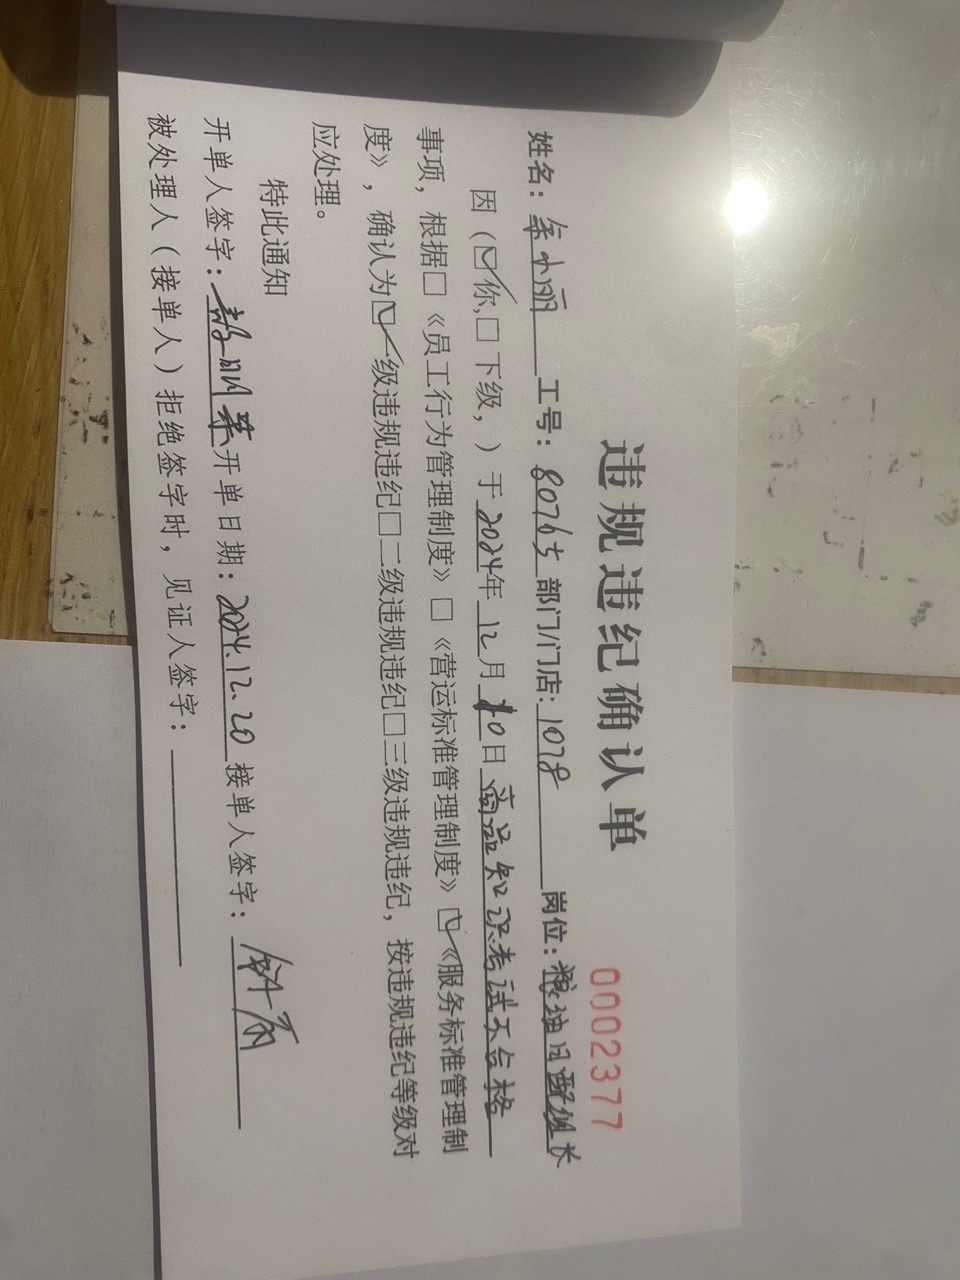 违规违纪确认单
0002377
姓名：余小丽 工号：80765 部门/门店：1078 岗位：粮油日配组长
因（☑你，□下级，）于2024年12月20日商品知识考试不合格
事项，根据□《员工行为管理制度》□《营运标准管理制度》☑《服务标准管理制
度》，确认为☑一级违规违纪□二级违规违纪□三级违规违纪，按违规违纪等级对
应处理。
特此通知
开单人签字： 开单日期：2024.12.20 接单人签字：
被处理人（接单人）拒绝签字时，见证人签字：